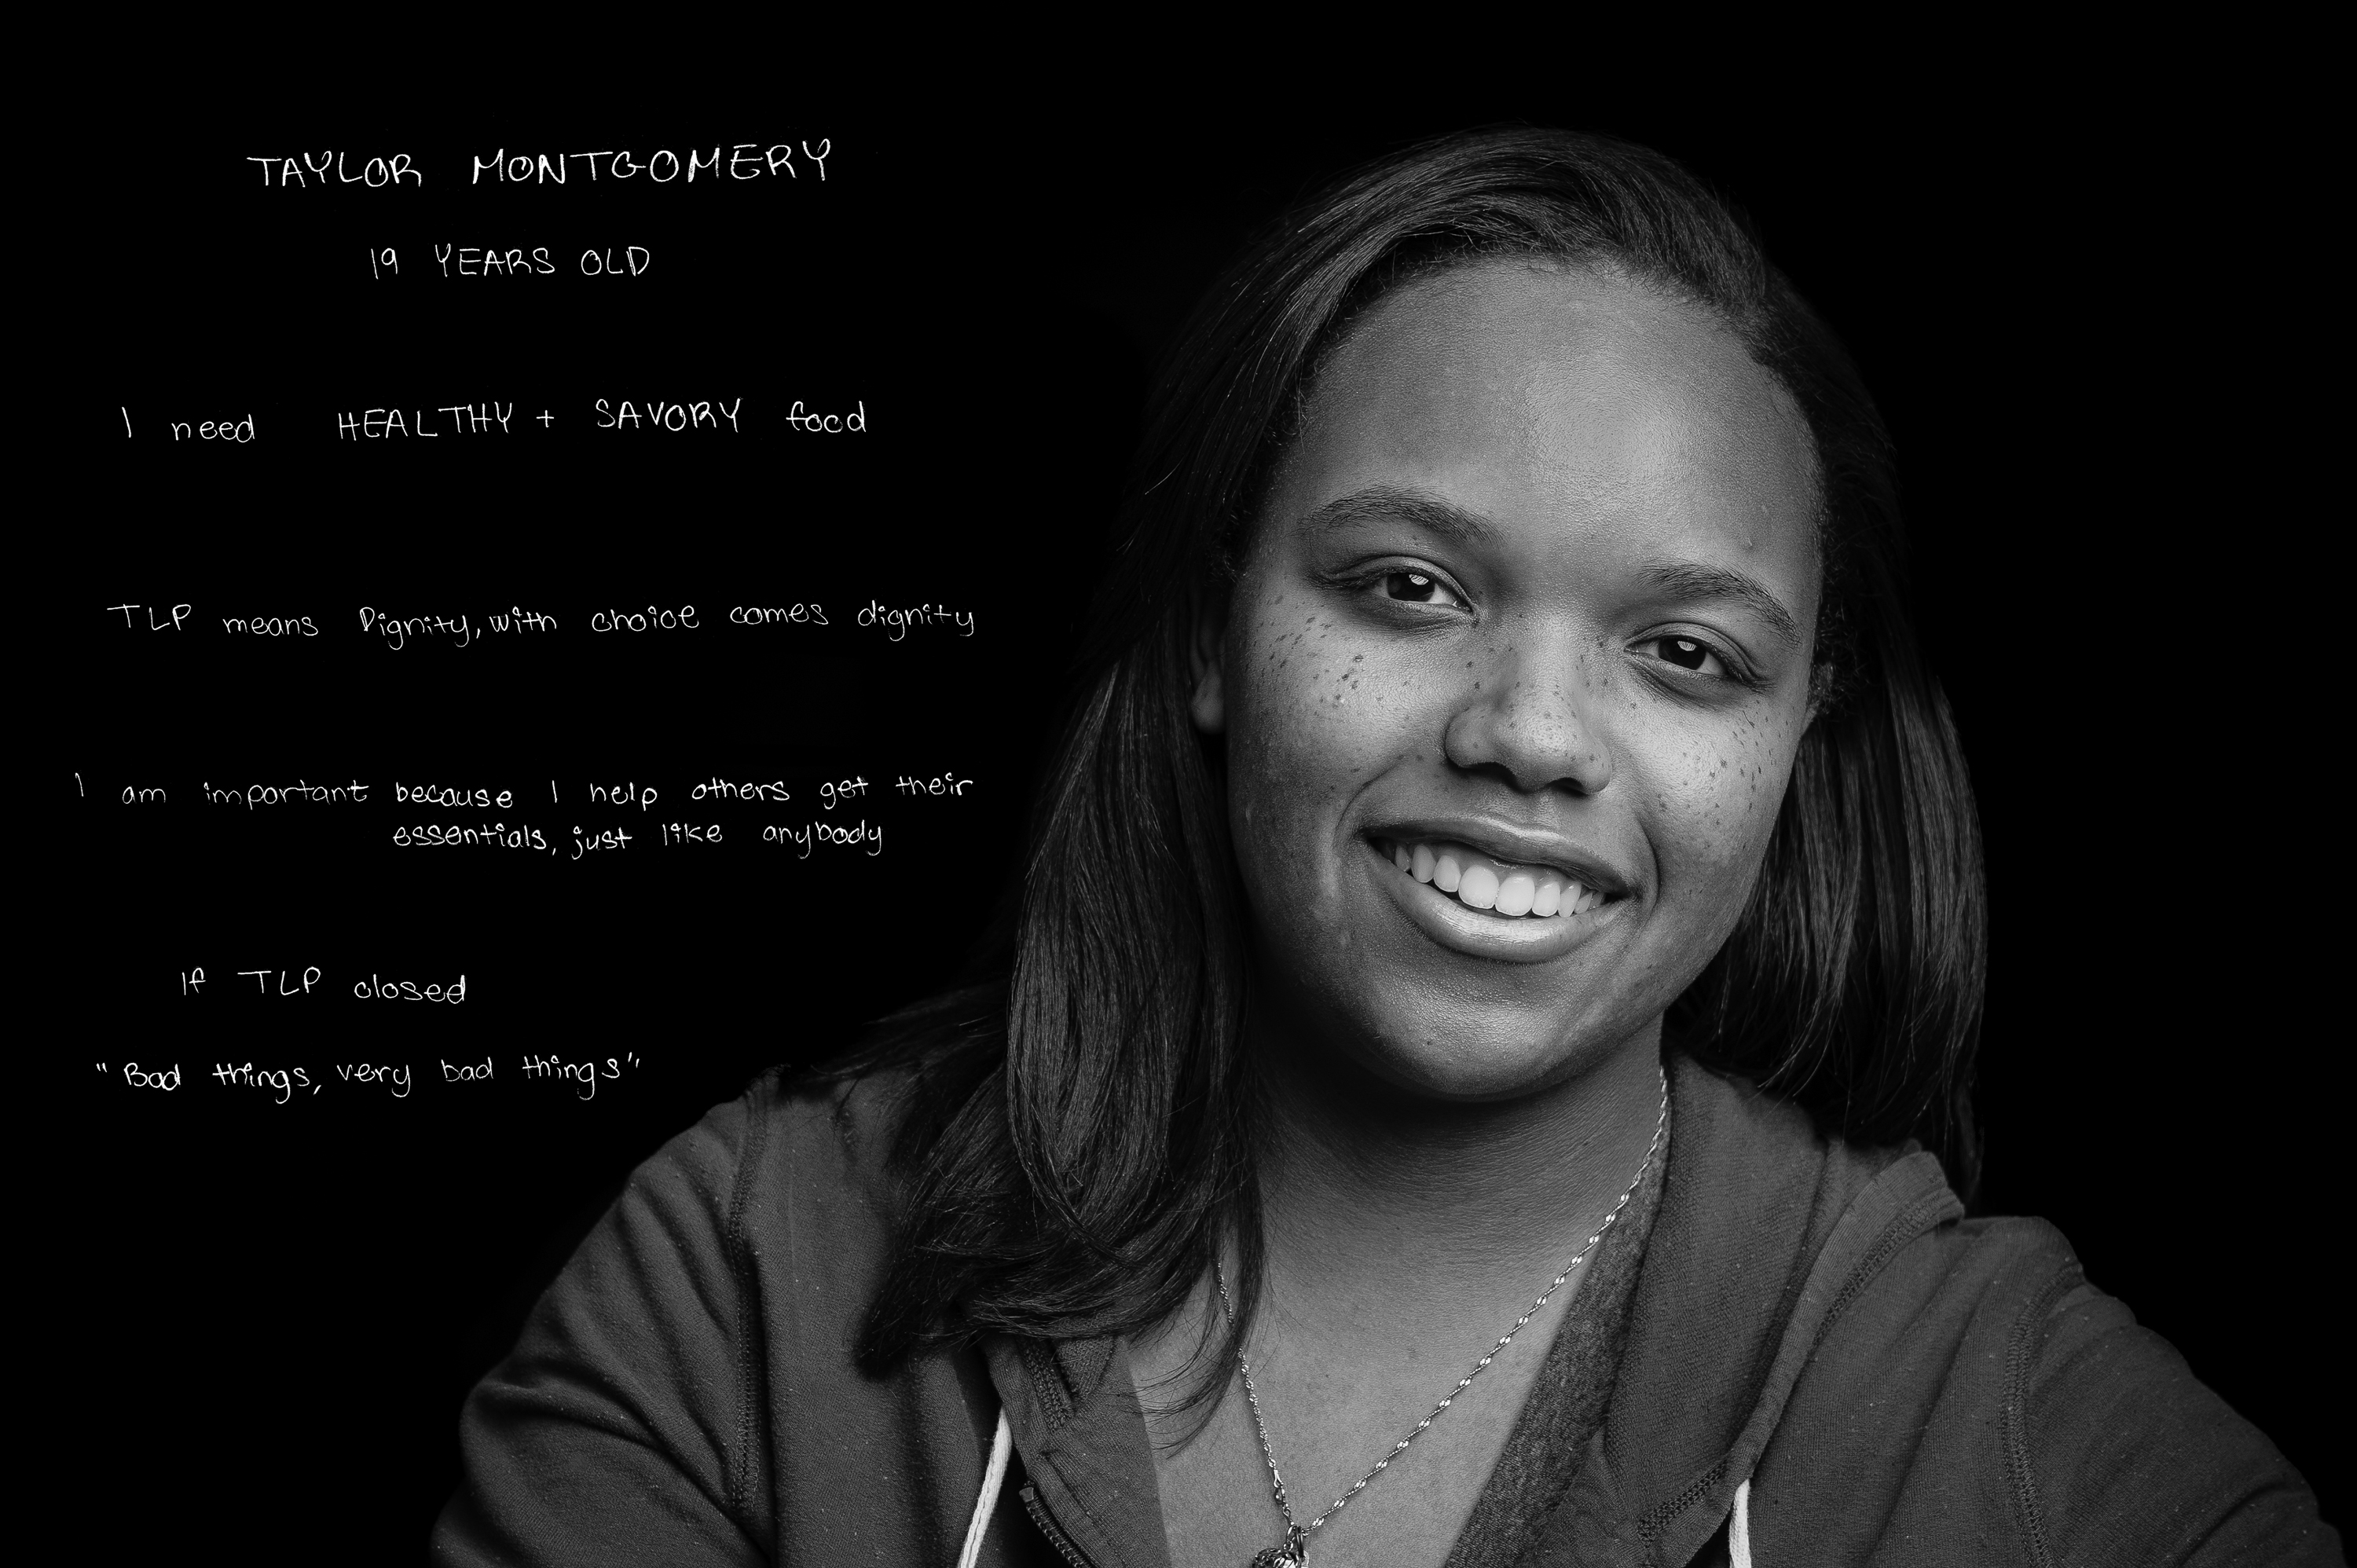 TAYLOR MONTGOMERY
19 YEARS OLD
I need HEALTHY + SAVORY food
TLP means Dignity, with choice comes dignity
I am important because I help others get their
essentials, just like anybody
If TLP closed
"Bad things, very bad things"